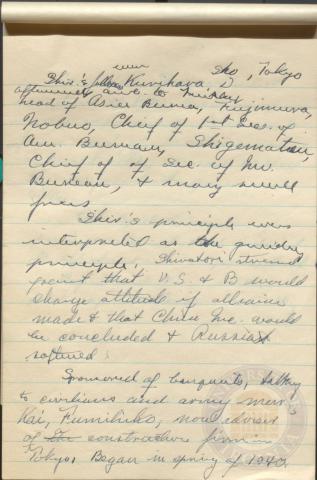 Sho, Tokyo
Shir.'s follower Kurihara
head of Asian Bureau, Fujimura,
Nobuo, Chief of 1st Sec. of
Am. Bureau, Shigematsu,
Chief of Sec. of Inv.
Bureau, & many small
Shir.'s principle was
interpreted as the guiding
principle. Shiratori stressed
point that U.S & B would
change attitude if alliance
made & that China Inc. would
be concluded & Russia
softened
Sponsored banquets, talking
to civilians and army men.
Kai, Fumihiko, now advisor
of the construction firm in
Tokyo. Began in spring of 1940.